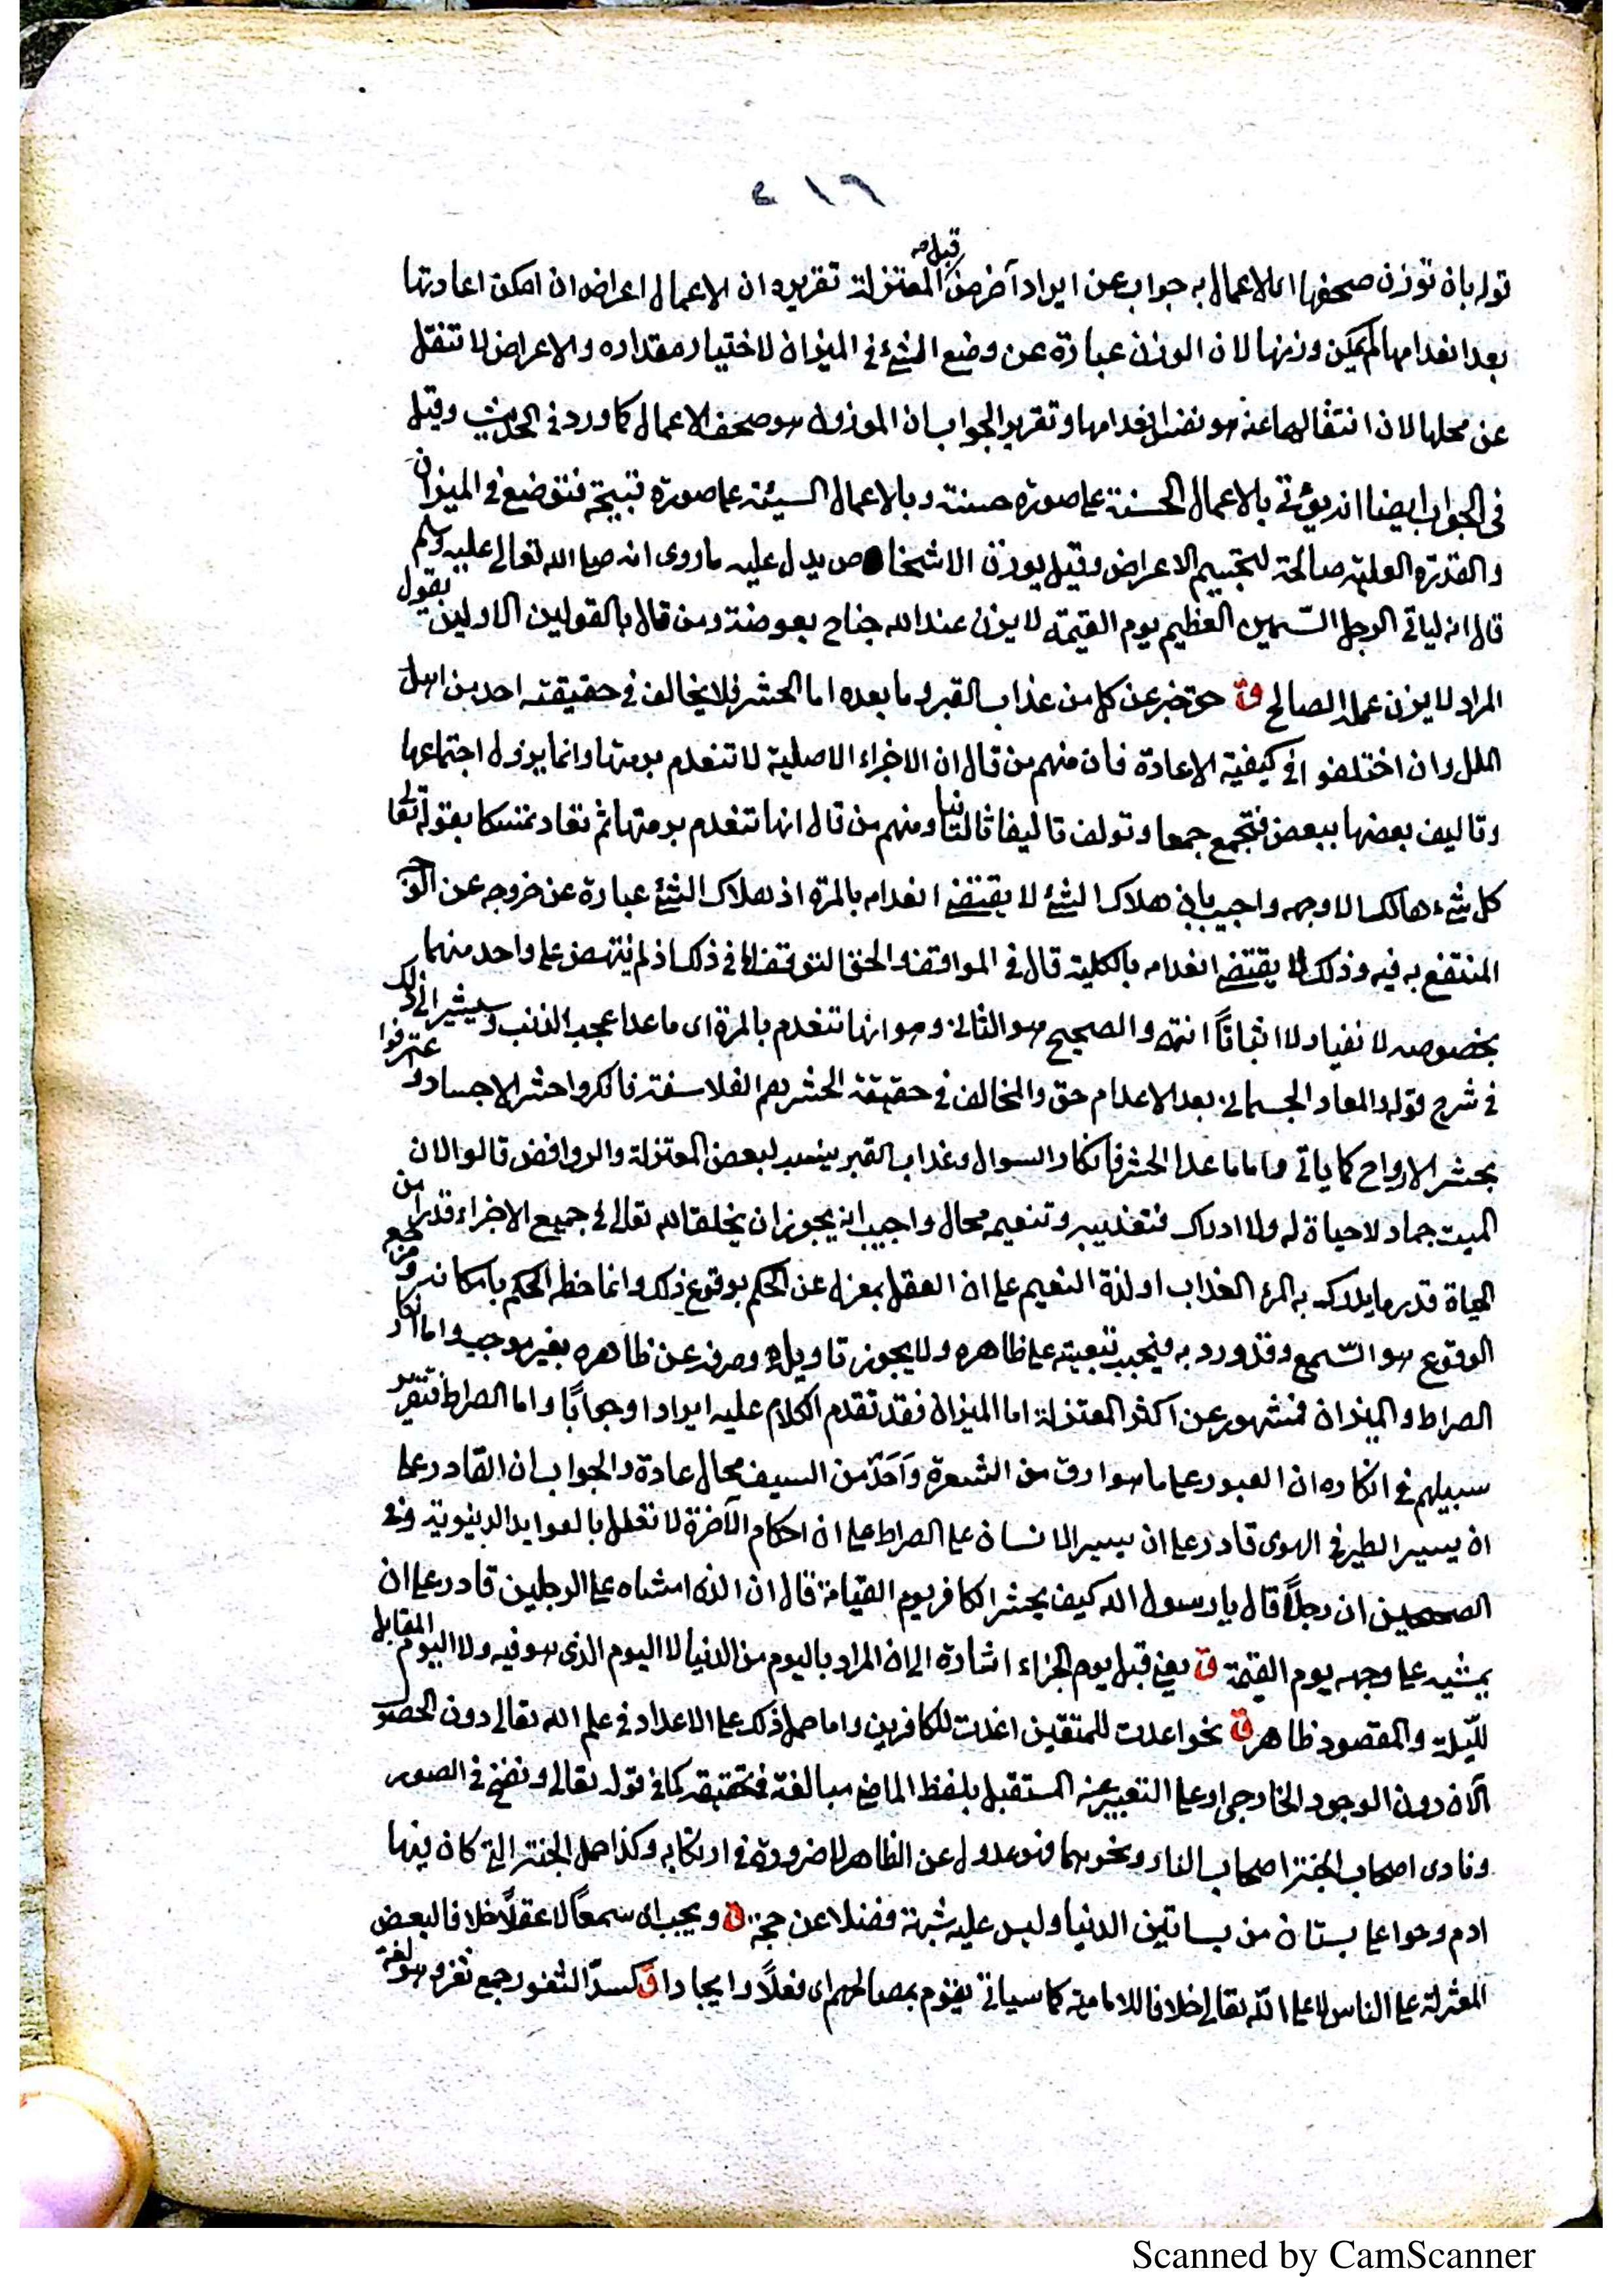 ٤١٦
قوله بان توزن صحفها اى الاعمال به جواب عن ايراد آخر من قبل المعتزلة تقريره ان الاعمال اعراض ان امكن اعادتها
بعد انعدامها لم يمكن وزنها لان الوزن عبارة عن وضع الشئ فى الميزان لاختيار مقداره والاعراض لا تنقل
عن محلها لان انتقالها عنه هو نفس انعدامها وتقرير الجواب ان الموزون هو صحف الاعمال كما ورد فى الحديث وقيل
فى الجواب ايضا انه يؤتى بالاعمال الحسنة على صورة حسنة وبالاعمال السيئة على صورة قبيحة فتوضع فى الميزان
والقدرة العلية صالحة لتجسيم الاعراض وقيل يوزن الاشخاص يدل عليه ماروى انه صلى الله تعالى عليه وسلم
قال انه لياتى الرجل السمين العظيم يوم القيمة لا يزن عند الله جناح بعوضة ومن قال بالقولين الاولين يقول
المراد لا يزن عمله الصالح ق حق خبر عن كل من عذاب القبر وما بعده اما الحشر فلا يخالف فى حقيقته احد من اهل
الملل وان اختلفوا فى كيفية الاعادة فان منهم من قال ان الاجزاء الاصلية لا تنعدم برمتها وانما يزول اجتماعها
وتاليف بعضها ببعض فتجمع جمعا وتولف تاليفا ثانيا ومنهم من قال انها تنعدم برمتها ثم تعاد تمسكا بقوله تعالى
كل شئ هالك الا وجهه واجيب بان هلاك الشئ لا يقتضى انعدامه بالمرة اذ هلاك الشئ عبارة عن خروجه عن الحد
المنتفع به فيه وذلك لا يقتضى انعدامه بالكلية قال فى المواقف والحق التوقف فى ذلك اذ لم ينتهض على واحد منهما
بخصوصه لا نفيا ولا اثباتاً انتهى والصحيح هو الثانى وهو انها تنعدم بالمرة اى ما عدا عجب الذنب وسيشير الى ذلك
فى شرح قوله والمعاد الجسمانى بعد الاعدام حق والمخالف فى حقيقة الحشر هم الفلاسفة فانكروا حشر الاجساد واعترفوا
بحشر الارواح كما ياتى واما ما عدا الحشر فانكار السوال وعذاب القبر ينسب لبعض المعتزلة والروافض قالوا لان
الميت جماد لا حياة له ولا ادراك فتعذيبه وتنعيمه محال واجيب انه يجوز ان يخلق الله تعالى فى جميع الاجزاء قدرا من
الحياة قدر ما يدرك به الم العذاب او لذة النعيم على ان العقل بمعزل عن الحكم بوقوع ذلك وانما حظه الحكم بامكانه ومرجع
الوقوع هو السمع وقد ورد به فيجب تبعيته على ظاهره ولا يجوز تاويله وصرفه عن ظاهره بغير موجب واما انكار
الصراط والميزان فمشهور عن اكثر المعتزلة اما الميزان فقد تقدم الكلام عليه ايرادا وجواباً واما الصراط فتقرير
سبيلهم فى انكاره ان العبور على ما هو ارق من الشعرة واحدّ من السيف محال عادة والجواب ان القادر على
ان يسير الطير فى الهوى قادر على ان يسير الانسان على الصراط على ان احكام الآخرة لا تعلل بالعوايد الدنيوية وفى
الصحيحين ان رجلاً قال يا رسول الله كيف يحشر الكافر يوم القيامة قال ان الذى امشاه على الرجلين قادر على ان
يمشيه على وجهه يوم القيمة ق يعنى قبل يوم الجزاء اشارة الى ان المراد باليوم من الدنيا لا اليوم الذى هو فيه ولا اليوم المقابل
لليلة والمقصود ظاهر ق نحو اعدت للمتقين اعدت للكافرين واما حمل ذلك على الاعداد فى علم الله تعالى دون الحصول
الآن دون الوجود الخارجى او على التعبير عن المستقبل بلفظ الماضى مبالغة فى تحققه كما فى قوله تعالى ونفخ فى الصور
ونادى اصحاب الجنة اصحاب النار ونحوهما فهو عدول عن الظاهر لا ضرورة فى ارتكابه وكذا حمل الجنة التى كان فيها
ادم وحوا على بستان من بساتين الدنيا وليس عليه شبهة فضلا عن حجة ق ويجب اى سمعاً لا عقلاً خلافا لبعض
المعتزلة على الناس لا على الله تعالى خلافا للامامية كما سياتى يقوم بمصالحهم اى فعلاً وايجادا ق كسدّ الثغور جمع ثغر وهو لغة
Scanned by CamScanner